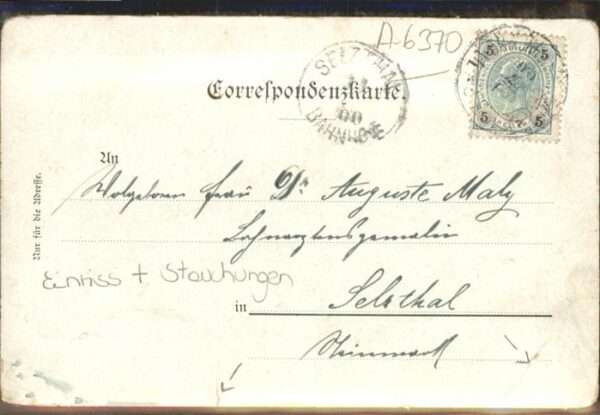 A-6370
SELZTHAL
00
BAHNHOF
5 5
5 5
Correspondenzkarte.
An
Wolgeboren Frau Dr. Auguste Maly
Nur für die Adresse.
Einriss + Stauchungen
in Selzthal
Steiermark